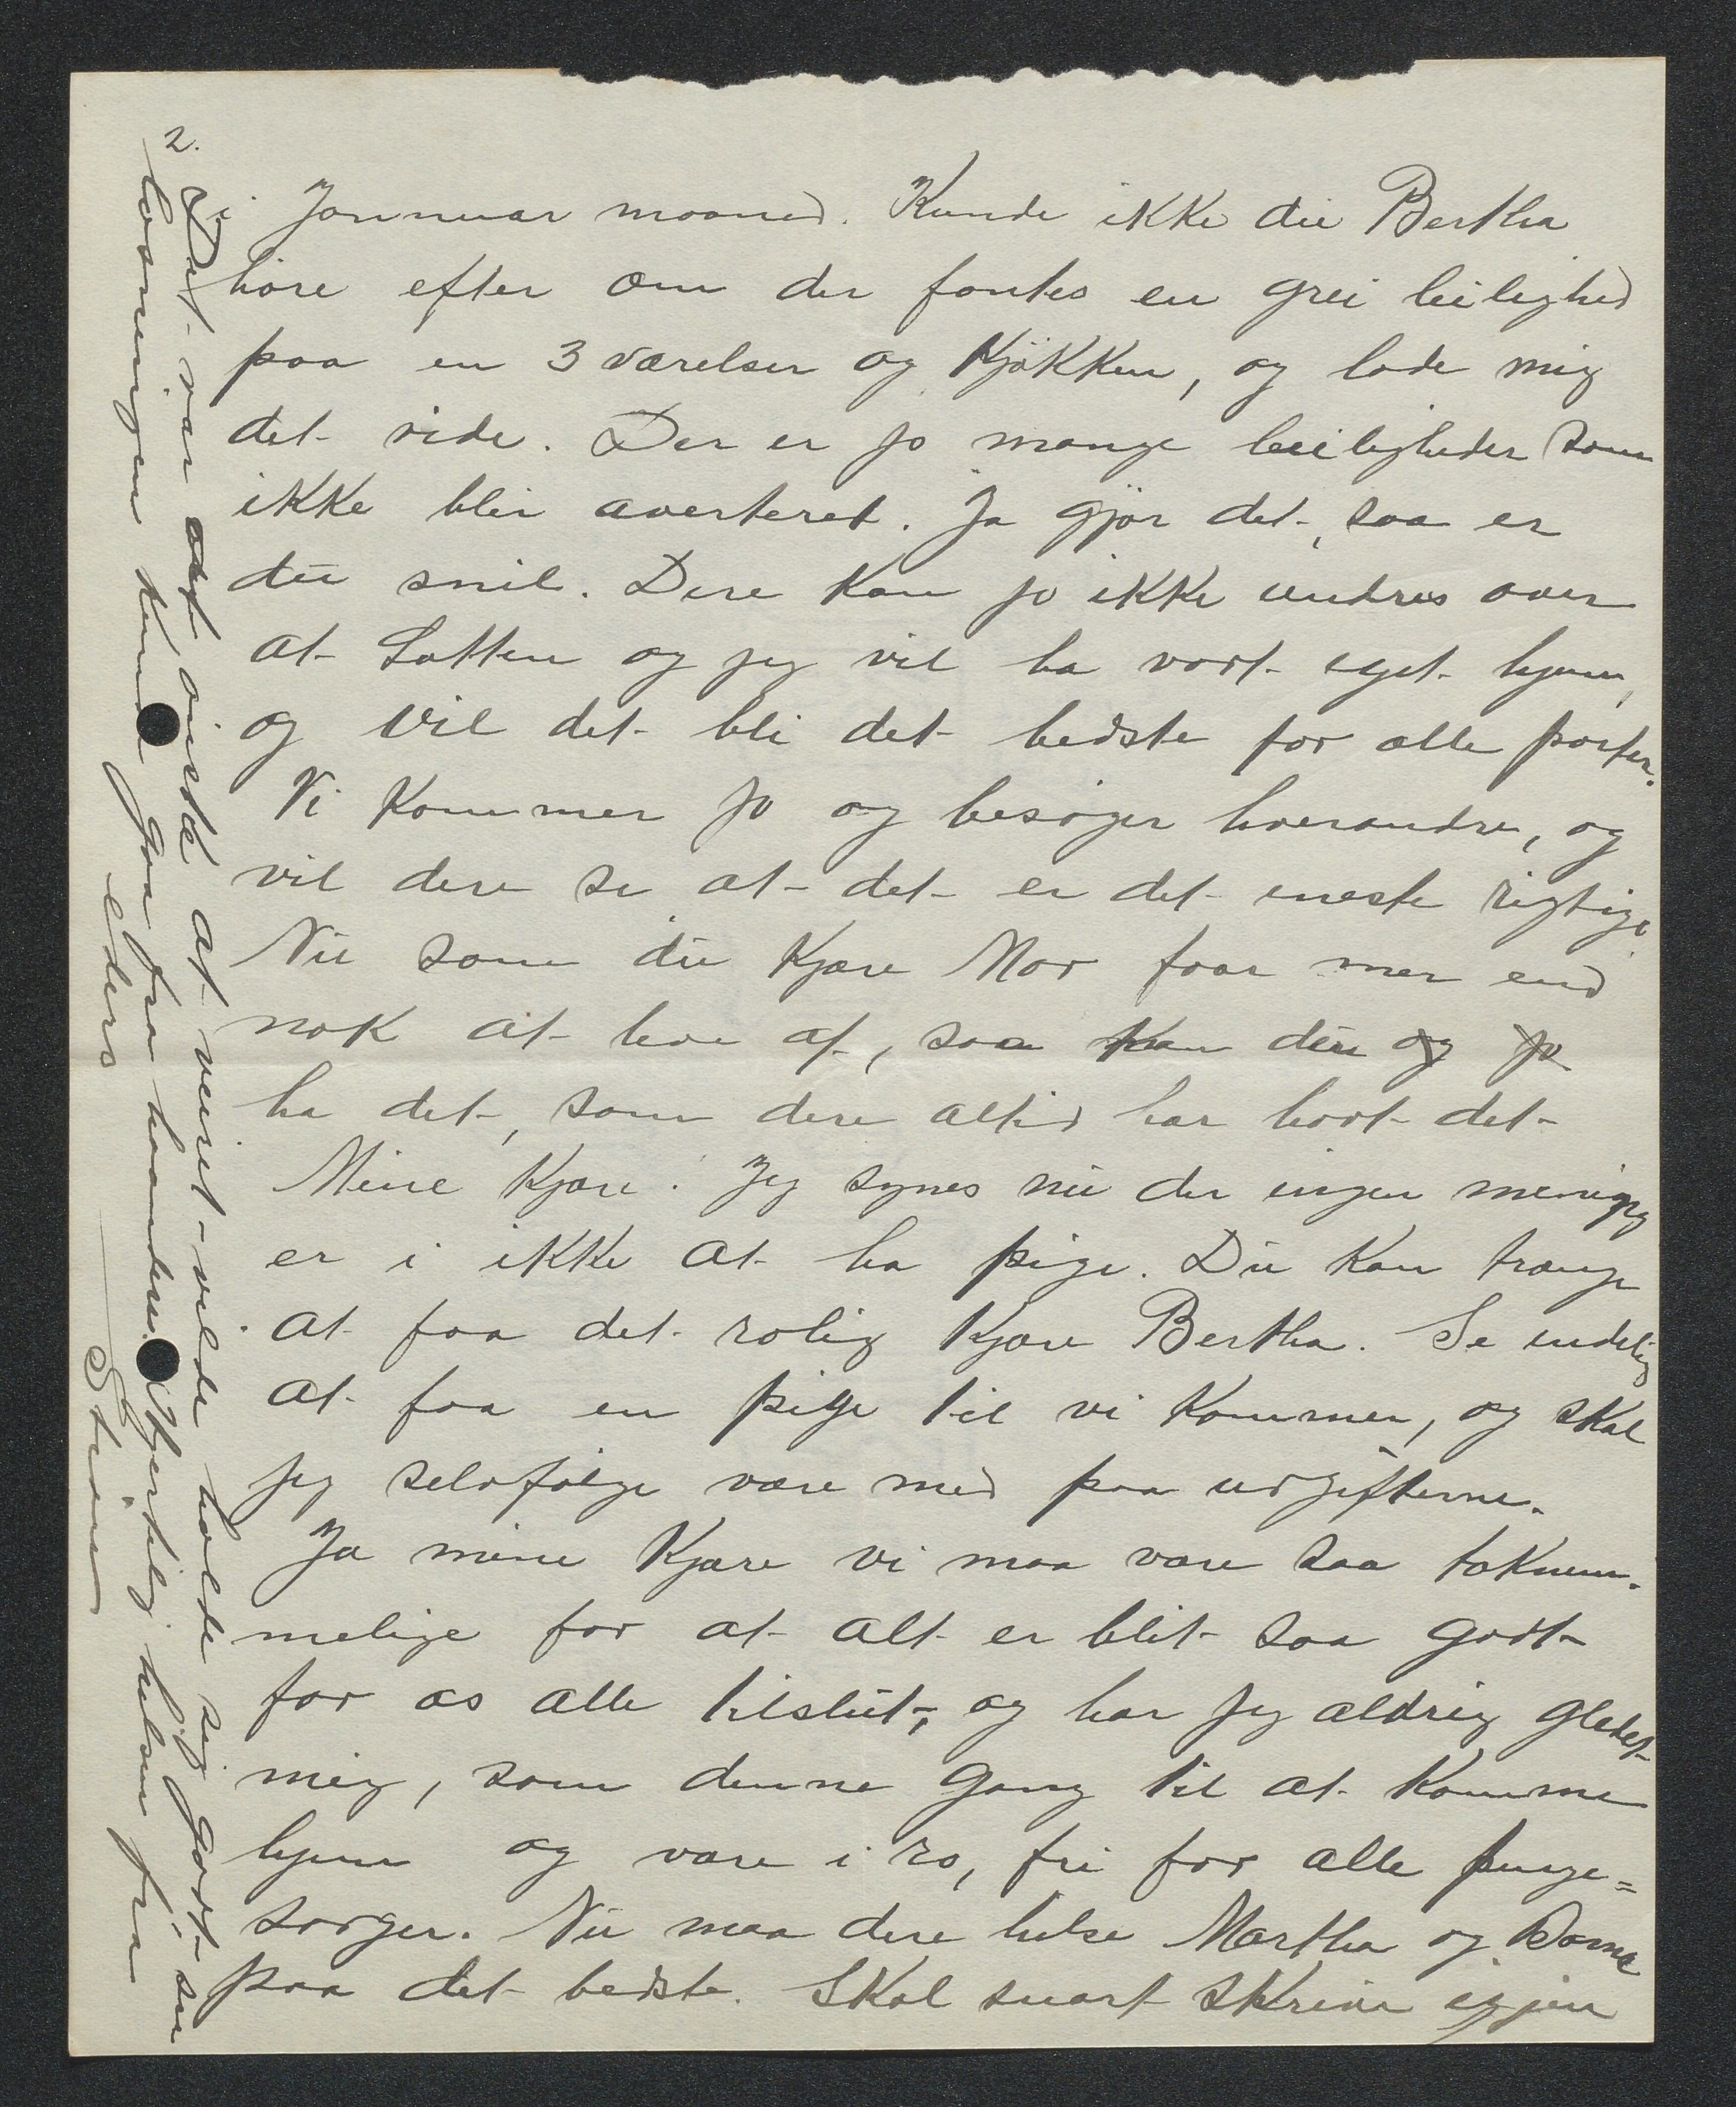 2.
i Jannuar maaned. Kunde ikke du Bertha
høre efter om der fantes en grei leilighed
paa en 3 værelser og Kjøkken, og lade mig
det vide. Der er jo mange leiligheder som
ikke blir averteret. Ja gjør det, saa er
du snil. Dere kan jo ikke undres over
at Lotten og jeg vil ha vort eget hjem,
og vil det bli det bedste for alle parter.
Vi kommer jo og besøger hverandre, og
vil dere se at det er det eneste rigtige
Nu som du Kjære Mor faar mer end
nok at leve af, saa kan du og jo
ha det, som dere altid har havt det
Mine Kjære. Jeg synes nu der ingen mening
er i ikke at ha pige. Du kan trænge
at faa det rolig Kjære Bertha. Se endelig
at faa en pige til vi kommer, og skal
jeg selvfølge være med paa udgifterne.
Ja mine Kjære vi maa være saa taknem-
melige for at alt er blit saa godt
for os alle tilslut, og har jeg aldrig glædet
mig, som denne gang til at komme
hjem og være i ro, fri for alle penge=
sorger. Nu maa dere hilse Martha og
paa det bedste. Skal snart skrive igjen
Det var at ønske at veiret vilde holde sig godt, saa
losningen kunde gaa fra haanden. Hjertelig hilsen fra
eders
Stian